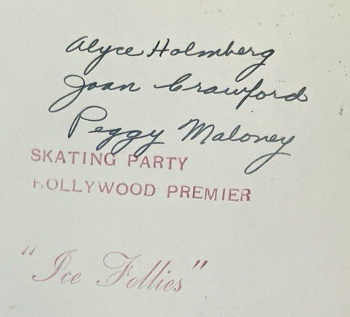 Alyce Holmberg
Joan Crawford
Peggy Maloney
SKATING PARTY
HOLLYWOOD PREMIER
"Ice Follies"